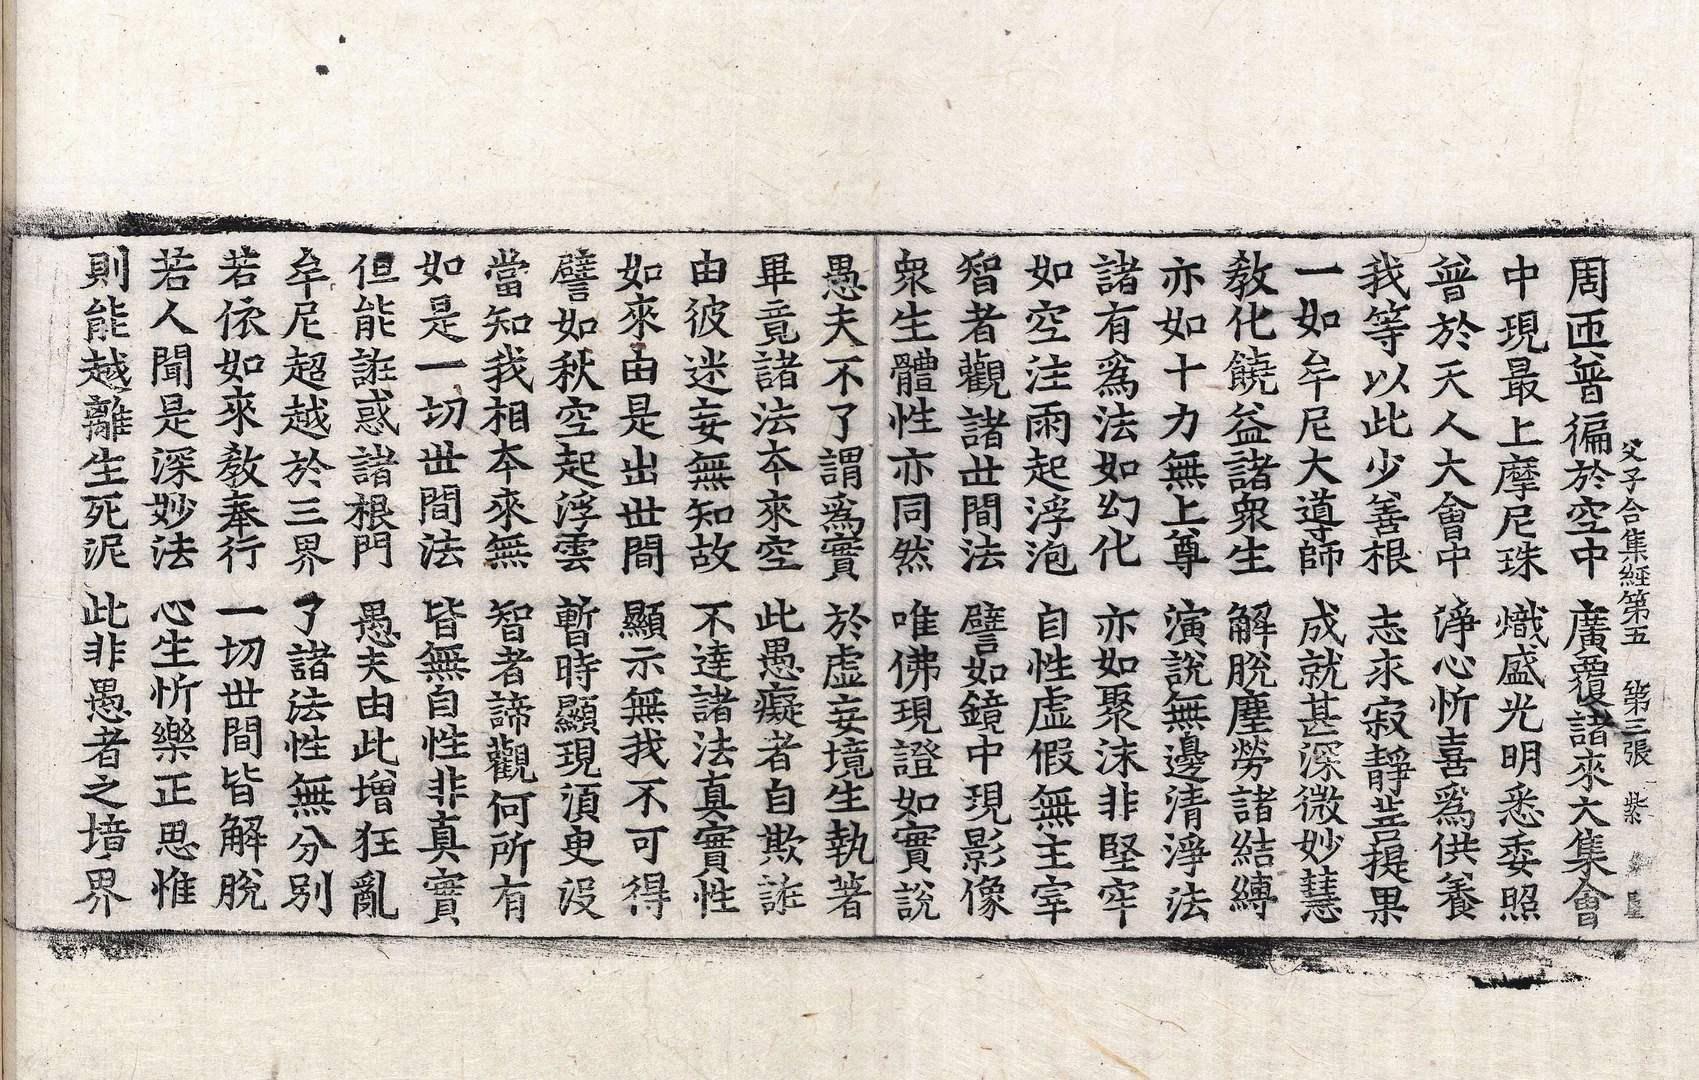 父子合集經第五　第三張　紫
周匝普徧於空中　廣覆諸來大集會
中現最上摩尼珠　熾盛光明悉委照
普於天人大會中　淨心忻喜爲供養
我等以此少善根　志求寂靜菩提果
一如牟尼大導師　成就甚深微妙慧
教化饒益諸衆生　解脫塵勞諸結縛
亦如十力無上尊　演說無邊清淨法
諸有爲法如幻化　亦如聚沫非堅牢
如空注雨起浮泡　自性虛假無主宰
智者觀諸世間法　譬如鏡中現影像
衆生體性亦同然　唯佛現證如實說
愚夫不了謂爲實　於虛妄境生執著
畢竟諸法本來空　此愚癡者自欺誑
由彼迷妄無知故　不達諸法真實性
如來由是出世間　顯示無我不可得
譬如秋空起浮雲　暫時顯現須臾沒
當知我相本來無　智者諦觀何所有
如是一切世間法　皆無自性非真實
但能誑惑諸根門　愚夫由此增狂亂
牟尼超越於三界　了諸法性無分別
若依如來教奉行　一切世間皆解脫
若人聞是深妙法　心生忻樂正思惟
則能越離生死泥　此非愚者之境界